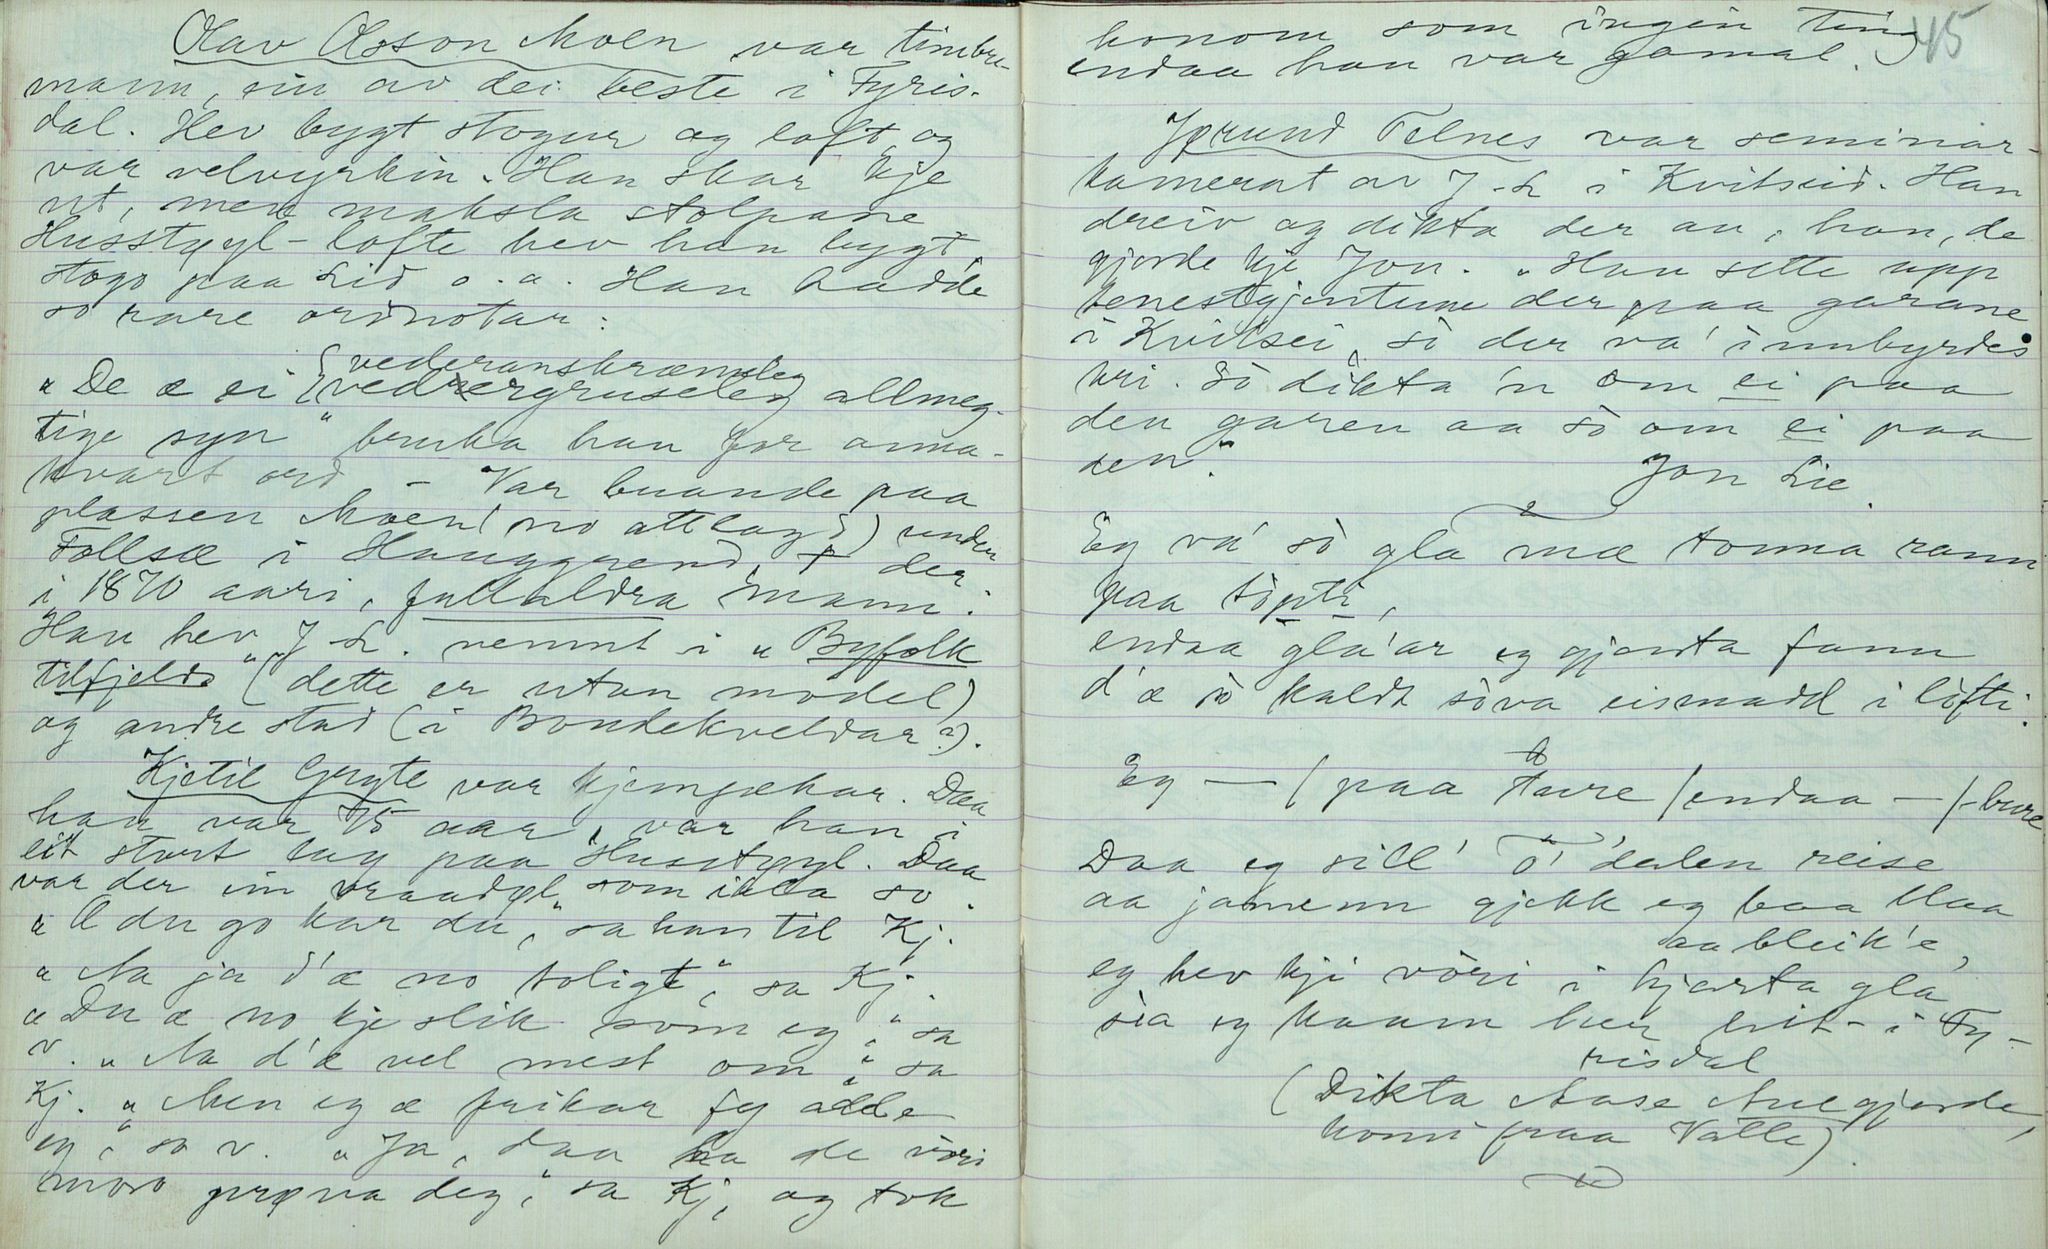 Olav Olsson Moen var timbr-
mann, ein av dei beste i Fyris-
dal. Hev bygt stogur og loft og
var velvyrkin. Han skar kje
ut, men maksla stolpane
Husstøyl-lofte hev han bygt,
stogo paa Lid o. a. Han hadde
so rare ordnotar:
vederanskræmeleg
"De æ ei vedergruseleg allmeg-
tige syn" bruka han for anna-
kvart ord. – Var buande paa
plassen Moen (no attlagd) under
Follsæ i Hauggrend, † der
i 1870 aari, fullaldra mann.
Han hev J. L. nemnt i "Byfolk
tilfjelds" (dette er utan model)
og andre stad (i Bondekveldar?).
Kjetil Gryte var kjempekar. Daa
han var 75 aar, var han i
eit stort lag paa Husstøyl. Daa
var der ein vraadøl som ikka so.
"Æ du go kar du," sa han til Kj.
"Aa ja d'æ no toligt," sa Kj.
"Du æ no kje slik som eg," sa
v. "Aa d'æ vel mest om," sa
Kj. "Men eg æ frikar fy alle
eg," sa v. "Ja, daa ha de vori
moro prøva deg," sa Kj, og tok
45
honom som ingin ting
endaa han var gamal.
Jørund Telnes var seminar-
kamerat av J. L. i Kvitseid. Han
dreiv og dikta der au, han, de
gjorde kje Jon. "Han sette upp
tenestgjentune der paa garane
i Kvitsei, så der va' innbyrdes
kri. Så dikta 'n om ei paa
den garen aa så om ei paa
den".
Jon Lie.
Eg va' så gla mæ tonna rann
paa tòpti,
endaa gla'ar eg gjenta fann
d'æ så kaldt sòva eismadd i lòfti.
Eg — / paa Aure / endaa — / - bure
Daa eg sill' o' dalen reise
aa jamenn gjekk eg baa blaa
aa bleik'e,
eg hev kji vòri i hjarta gla
sia eg kaam her hit i Fy-
risdal
(Dikta Aase gjorde,
komi fraa Valle).